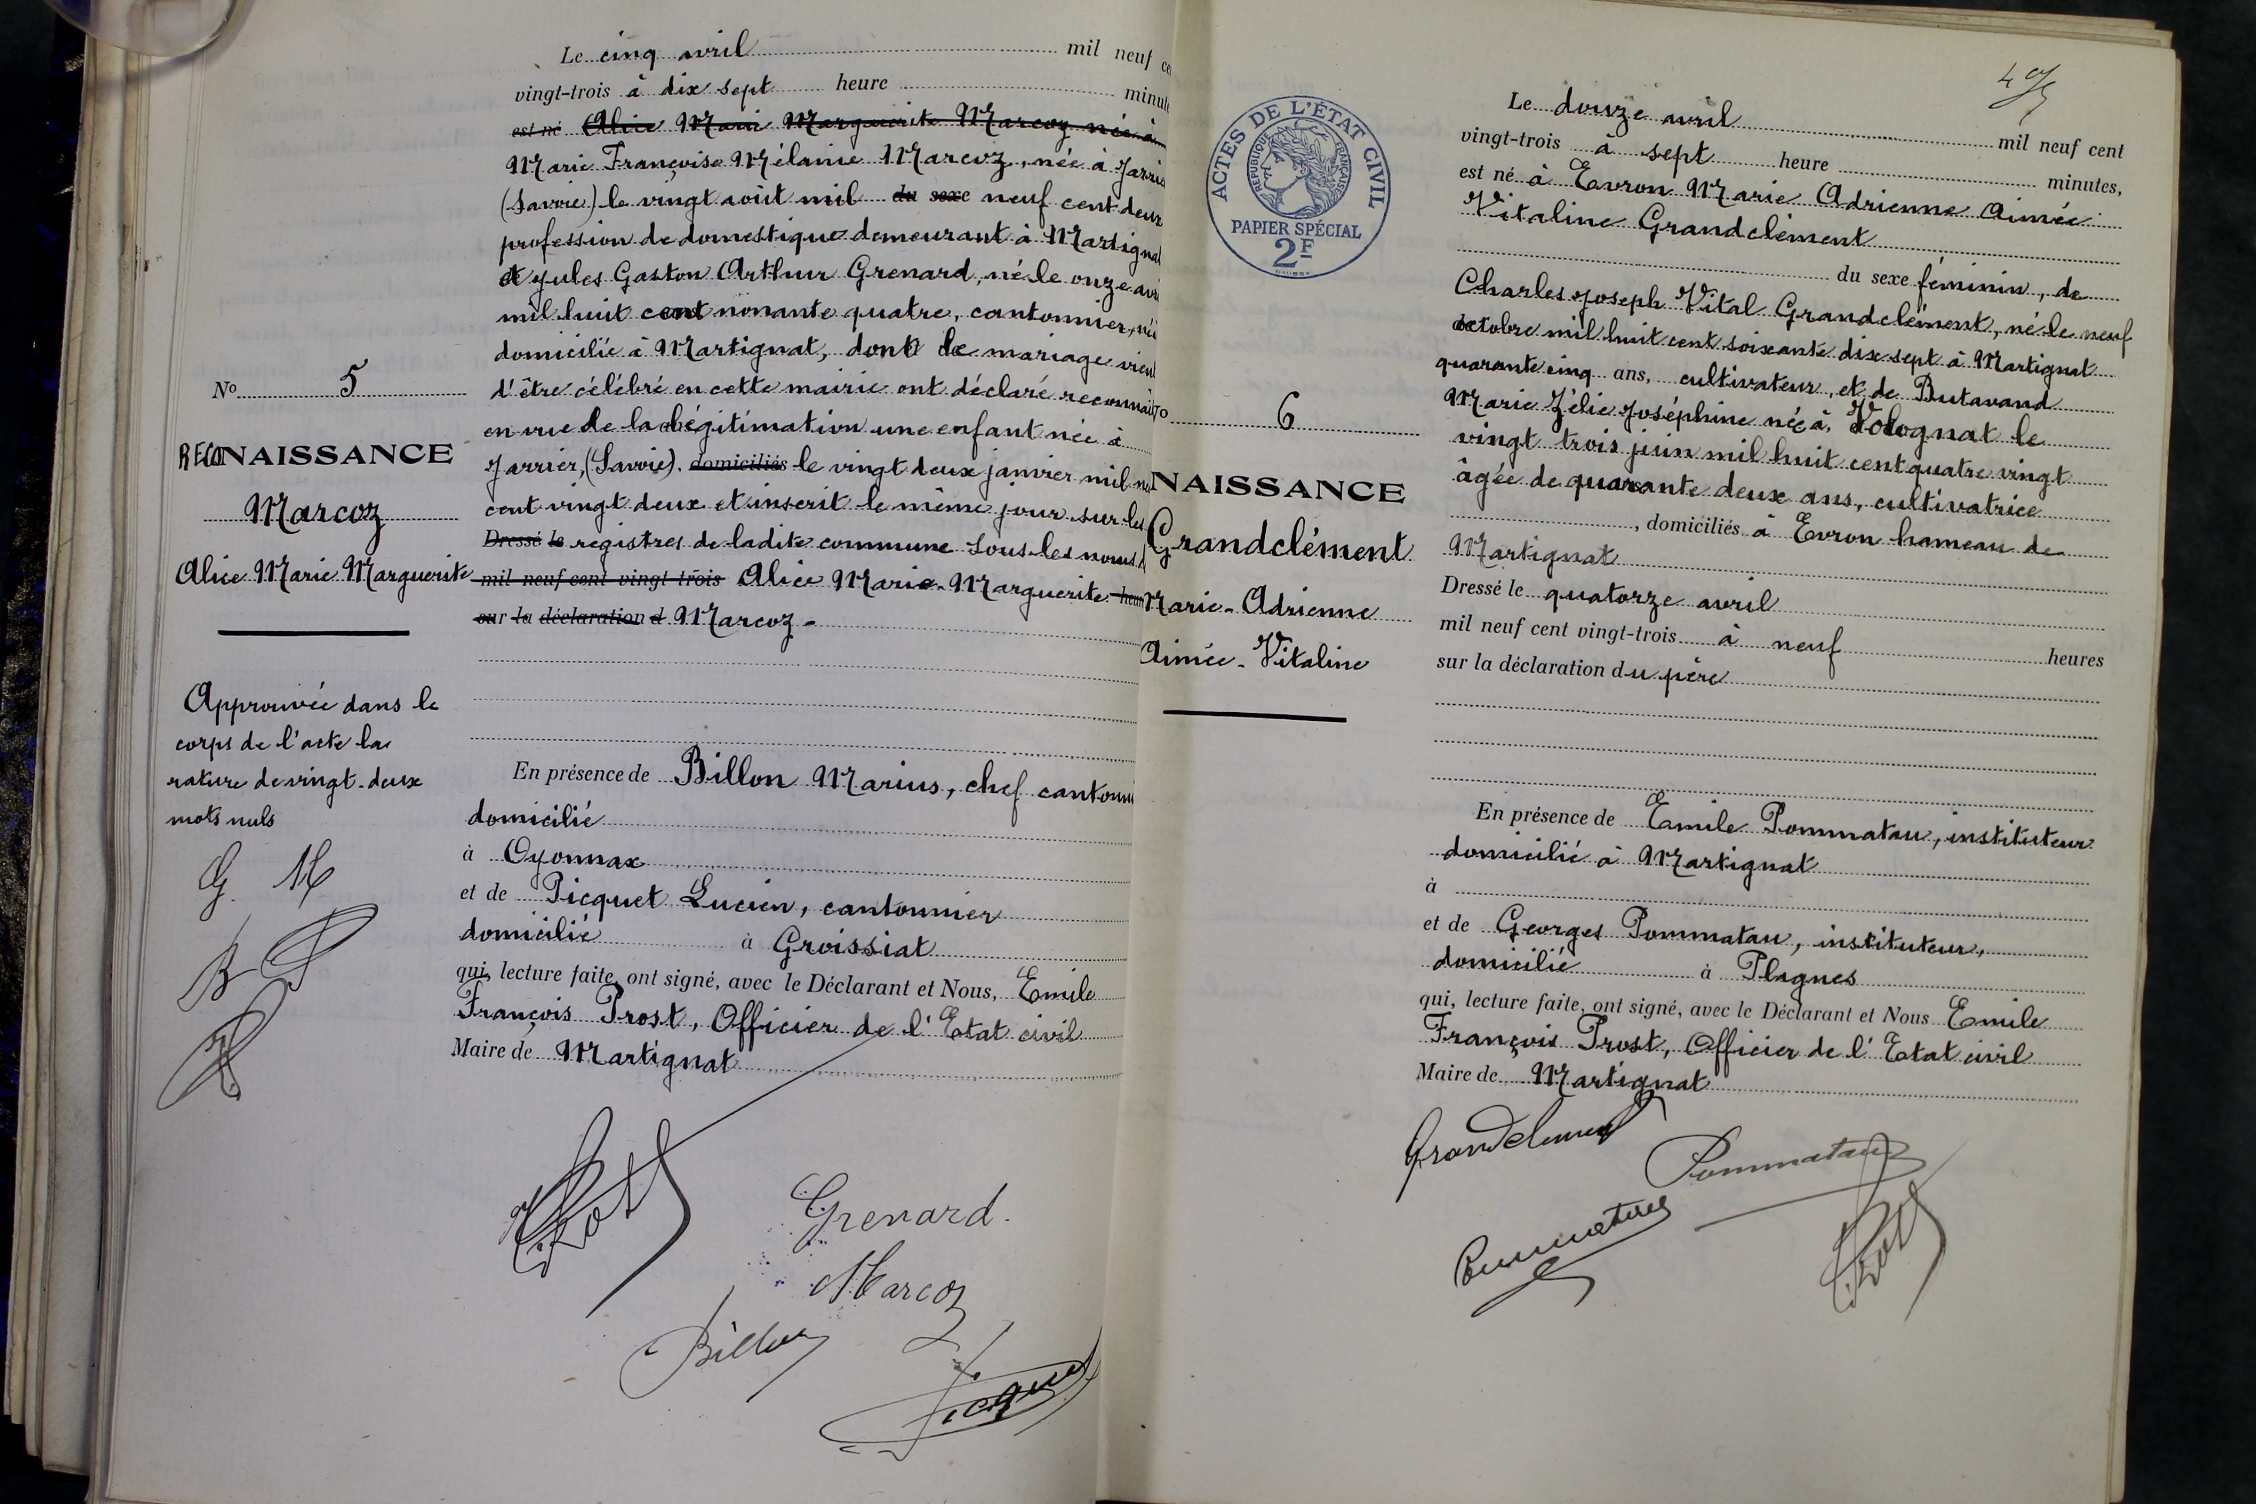 Le cinq avril mil neuf
vingt-trois à dix sept heure
est né Alice Marie Marguerite Marcoz née à
Marie Françoise Mélanie Marcoz, née à
(Savoie) le vingt août mil du sexe neuf cent deux
profession de domestique demeurant à Martignat
et Jules Gaston Arthur Grenard, né le onze
mil huit cent nonante quatre, cantonnier,
domicilié à Martignat, dont le mariage vient
d'être célébré en cette mairie ont déclaré
en vue de la légitimation une enfant née à
Jarrier, (Savoie). domiciliés le vingt deux janvier mil
cent vingt deux et inscrit le même jour sur les
Dressé le registres de ladite commune sous les noms
mil neuf cent vingt-trois Alice Marie-Marguerite
sur la déclaration d Marcoz-
En présence de Billon Marius, chef
domicilié
à Oyonnax
et de Picquet Lucien, cantonnier
domicilié à Groissiat
qui, lecture faite, ont signé, avec le Déclarant et Nous, Emile
François Prost, Officier de l'Etat civil
Maire de Martignat
Prost
Grenard.
Marcoz
Billon
Picquet
No 5
RECONAISSANCE
Marcoz
Alice Marie Marguerite
Approuvée dans le
corps de l'acte la
rature de vingt-deux
mots nuls
G. M
B
4
ACTES DE L'ÉTAT CIVIL
RÉPUBLIQUE FRANÇAISE
PAPIER SPÉCIAL
2F
6
NAISSANCE
Grandclément
Marie-Adrienne
Aimée-Vitaline
Le douze avril mil neuf cent
vingt-trois à sept heure minutes,
est né à Evron Marie Adrienne Aimée
Vitaline Grandclément
du sexe féminin, de
Charles Joseph Vital Grandclément, né le neuf
octobre mil huit cent soixante dix sept à Martignat
quarante cinq ans, cultivateur, et de Butavand
Marie Zélie Joséphine née à Volognat le
vingt trois juin mil huit cent quatre vingt
âgée de quarante deux ans, cultivatrice
, domiciliés à Evron hameau de
Martignat
Dressé le quatorze avril
mil neuf cent vingt-trois à neuf heures
sur la déclaration du père
En présence de Emile Pommatau, instituteur
domicilié à Martignat
à
et de Georges Pommatau, instituteur,
domicilié à Plagnes
qui, lecture faite, ont signé, avec le Déclarant et Nous Emile
François Prost, Officier de l'Etat civil
Maire de Martignat
Grandclement
Pommatau
Pommatau
Prost